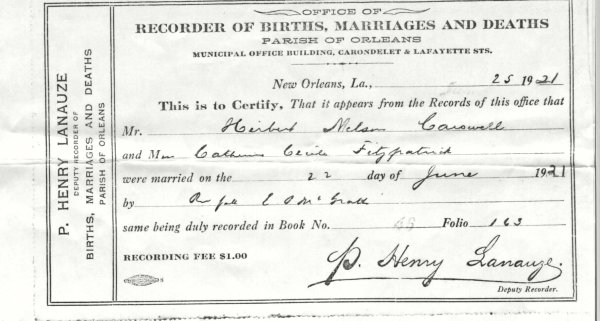 OFFICE OF
RECORDER OF BIRTHS, MARRIAGES AND DEATHS
PARISH OF ORLEANS
MUNICIPAL OFFICE BUILDING, CARONDELET & LAFAYETTE STS.
New Orleans, La., 25 1921
This is to Certify, That it appears from the Records of this office that
Mr. Herbert Nelson Carswell
and M Catherine Cecile Fitzpatrick
were married on the 22 day of June 1921
by McGrath
same being duly recorded in Book No. Folio 163
RECORDING FEE $1.00
P. Henry Lanauze.
Deputy Recorder.
P. HENRY LANAUZE
DEPUTY RECORDER OF
BIRTHS, MARRIAGES AND DEATHS
PARISH OF ORLEANS